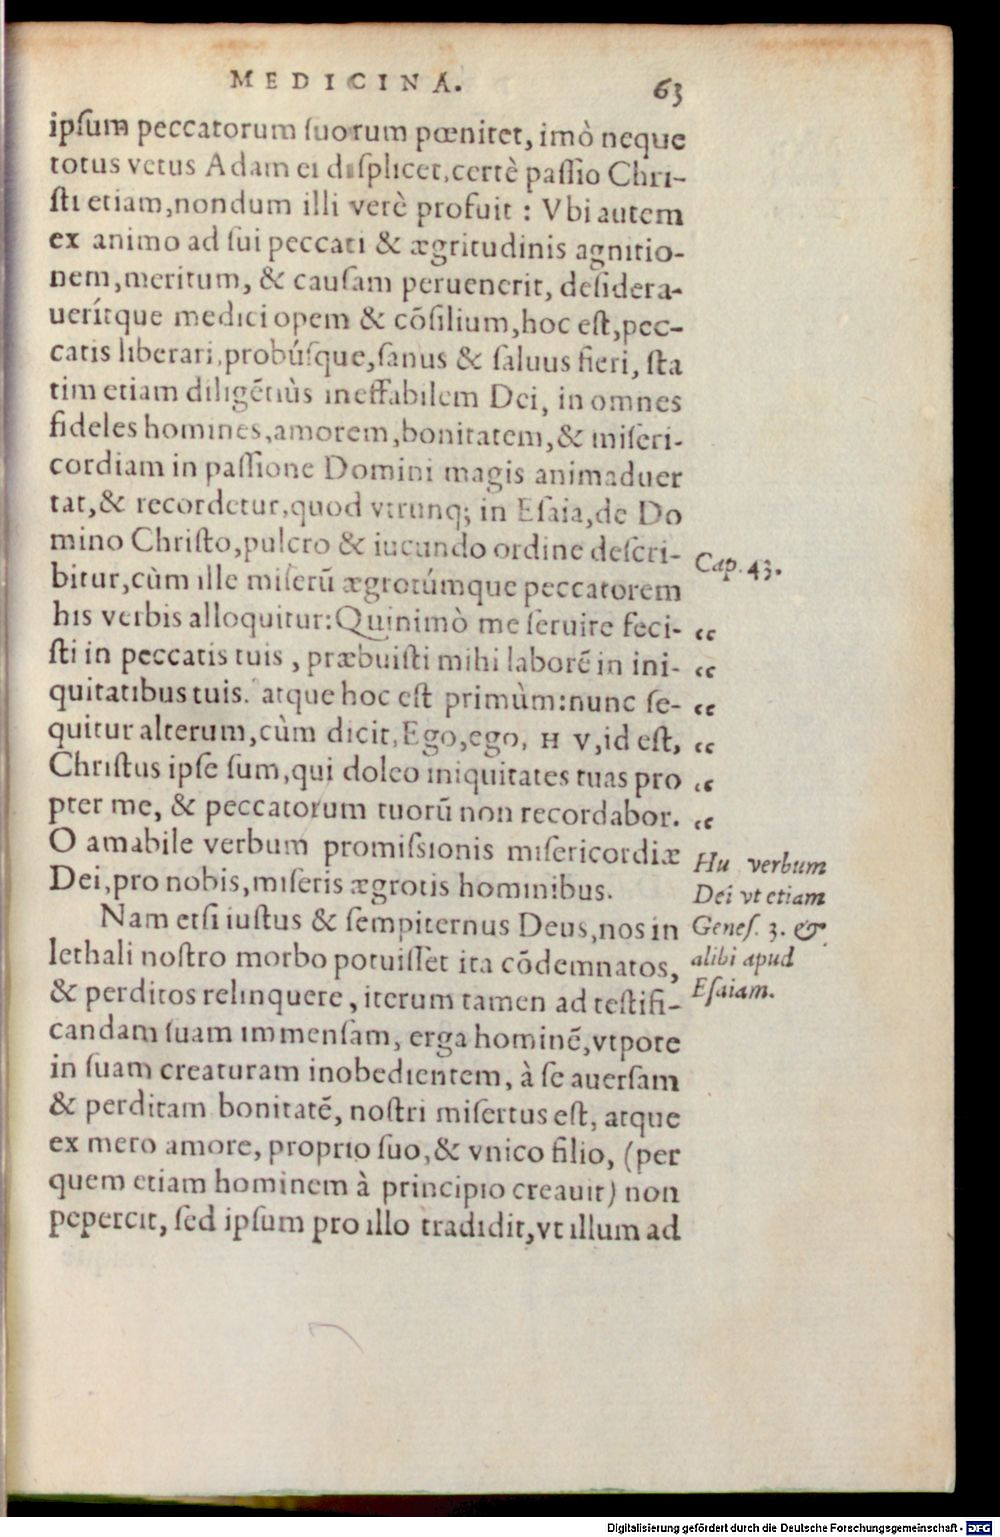 MEDICINA. 63
ipſum peccatorum ſuorum pœnitet, imò neque
totus vetus Adam ei diſplicet, certè paſſio Chri-
ſti etiam, nondum illi verè profuit : Vbi autem
ex animo ad ſui peccati & ægritudinis agnitio-
nem, meritum, & cauſam peruenerit, deſidera-
uerítque medici opem & cõſilium, hoc eſt, pec-
catis liberari, probúſque, ſanus & ſaluus fieri, ſta
tim etiam diligẽtiùs ineffabilem Dei, in omnes
fideles homines, amorem, bonitatem, & miſeri-
cordiam in paſſione Domini magis animaduer
tat, & recordetur, quod vtrunq; in Eſaia, de Do
mino Chriſto, pulcro & iucundo ordine deſcri-
Cap. 43.
bitur, cùm ille miſerũ ægrotúmque peccatorem
his verbis alloquitur: Quinimò me ſeruire feci- “
ſti in peccatis tuis, præbuiſti mihi laborẽ in ini- “
quitatibus tuis. atque hoc eſt primùm: nunc ſe- “
quitur alterum, cùm dicit, Ego, ego, H V, id eſt, “
Chriſtus ipſe ſum, qui doleo iniquitates tuas pro “
pter me, & peccatorum tuorũ non recordabor. “
O amabile verbum promiſsionis miſericordiæ
Dei, pro nobis, miſeris ægrotis hominibus.
Hu verbum
Dei vt etiam
Geneſ. 3. &
alibi apud
Eſaiam.
Nam etſi iuſtus & ſempiternus Deus, nos in
lethali noſtro morbo potuiſſet ita cõdemnatos,
& perditos relinquere, iterum tamen ad teſtifi-
candam ſuam immenſam, erga hominẽ, vtpote
in ſuam creaturam inobedientem, à ſe auerſam
& perditam bonitatẽ, noſtri miſertus eſt, atque
ex mero amore, proprio ſuo, & vnico filio, (per
quem etiam hominem à principio creauit) non
pepercit, ſed ipſum pro illo tradidit, vt illum ad
Digitalisierung gefördert durch die Deutsche Forschungsgemeinschaft - DFG